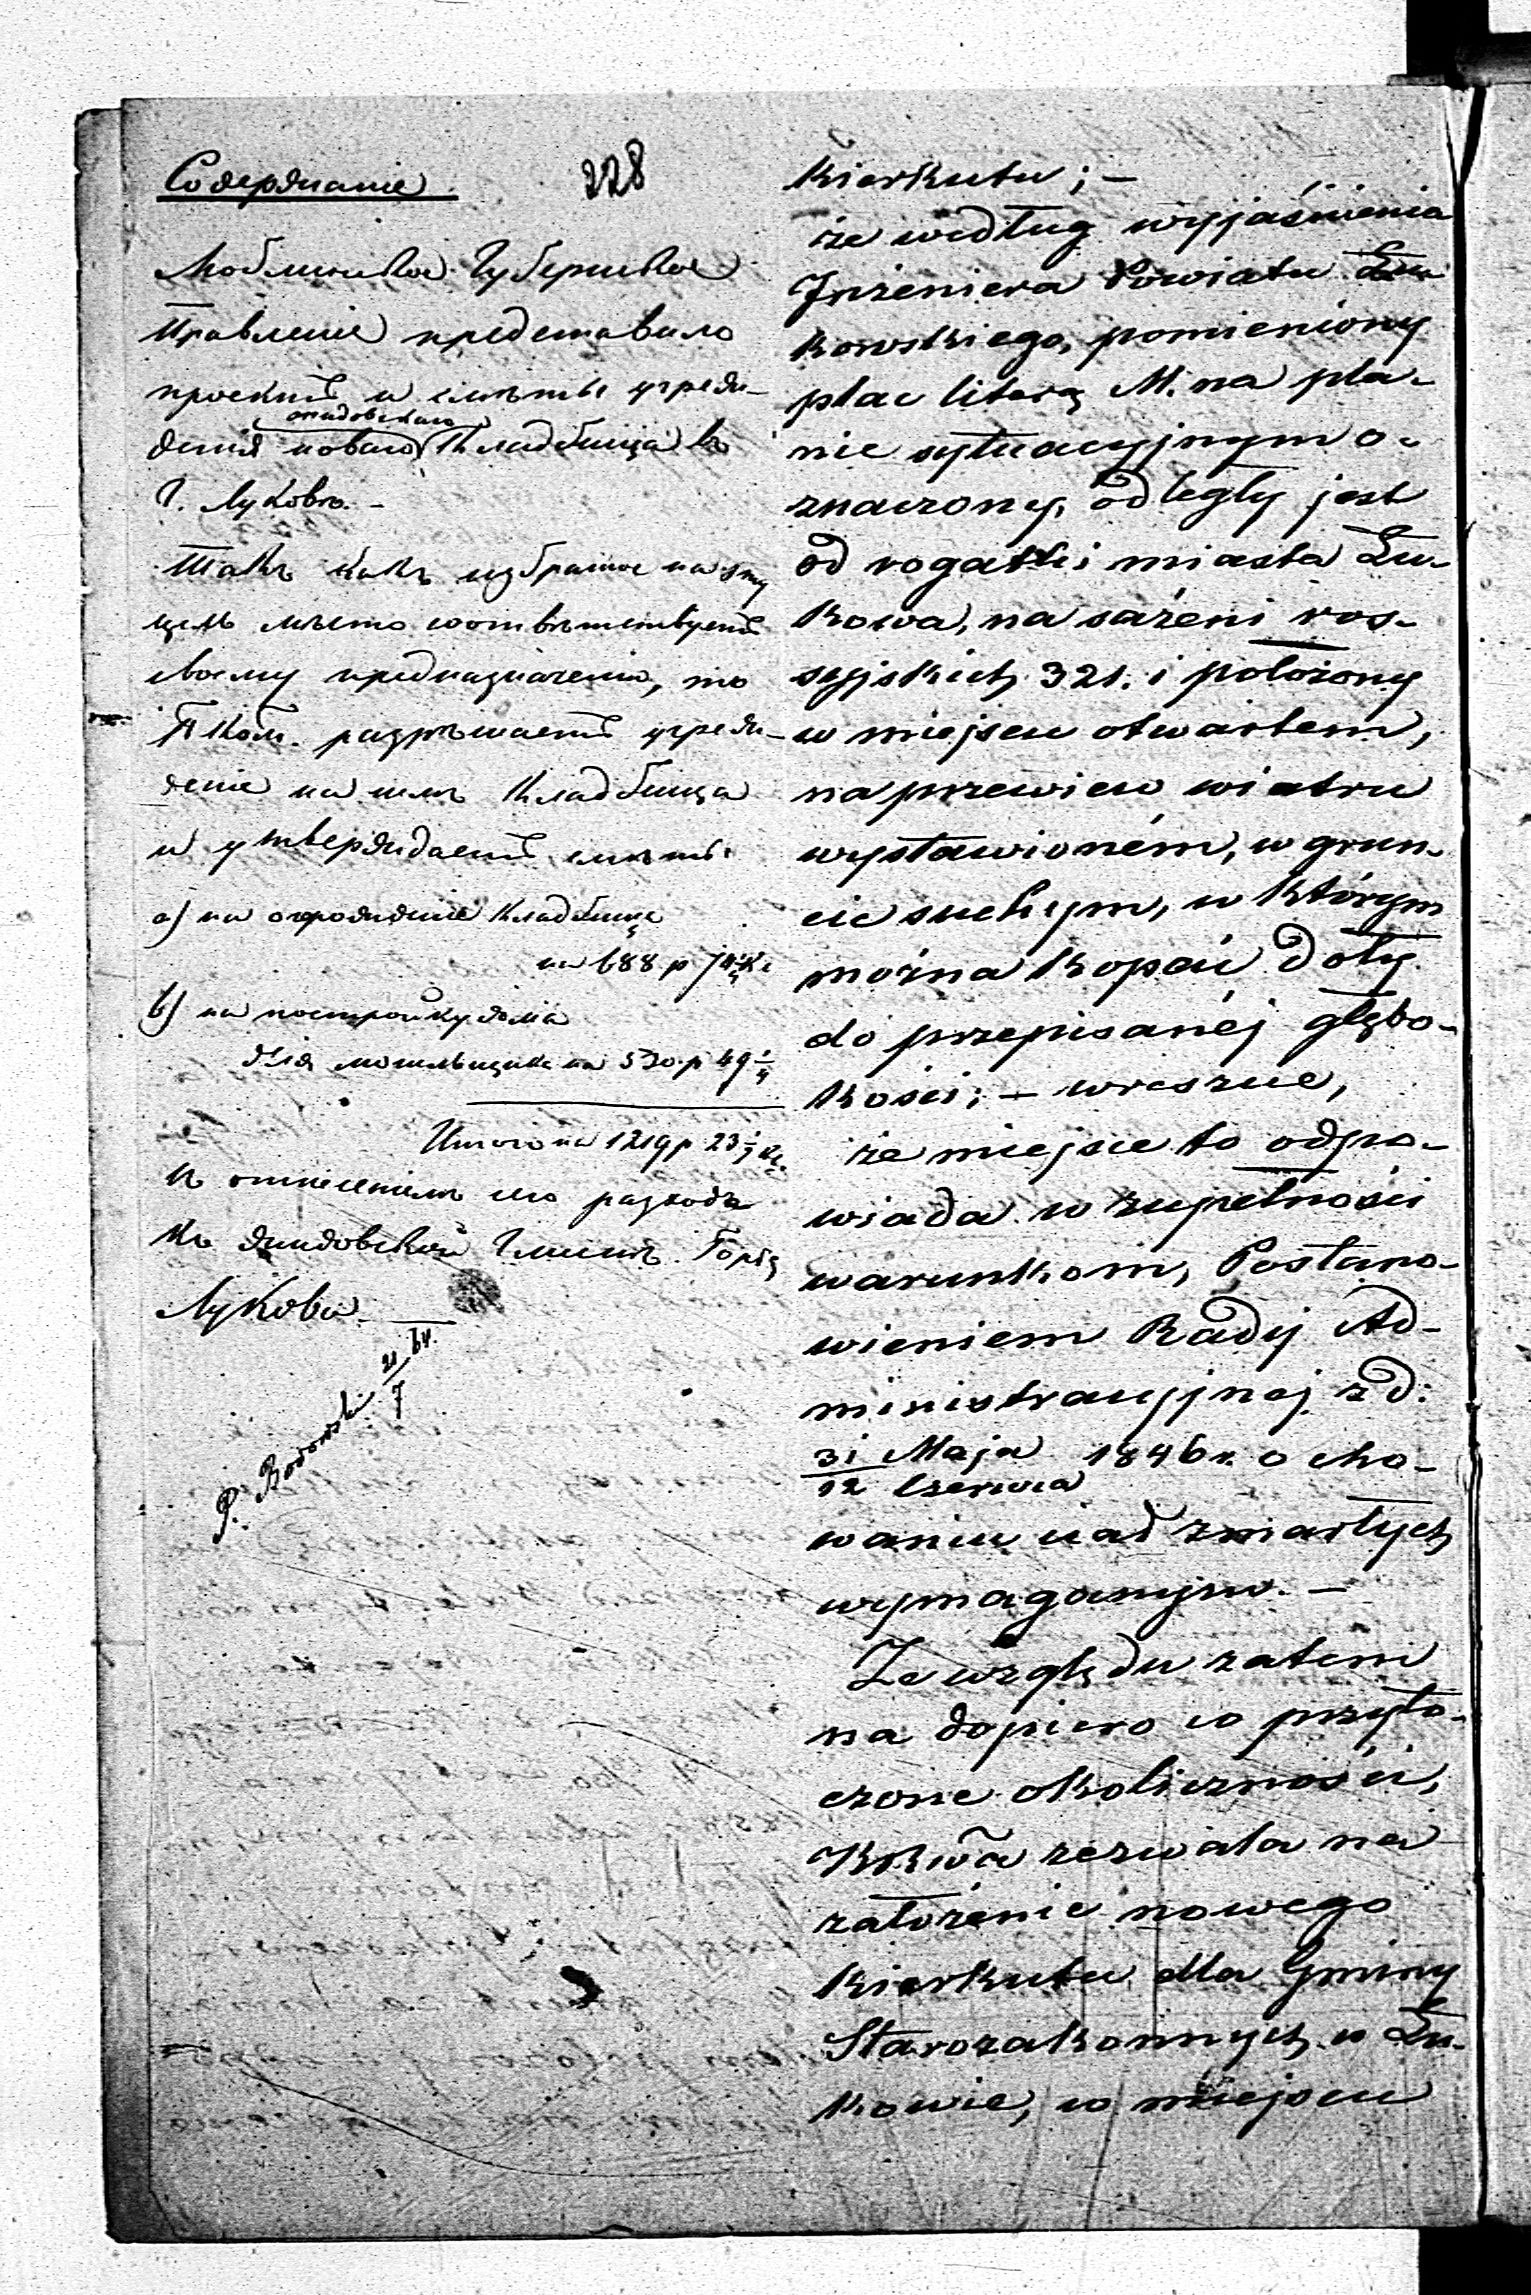 228
Содержаніе.
Люблинское Губернское
Правленіе представило
проектъ и смѣты учреж-
жидовскаго
денія новаго Кладбища въ
г. Луковѣ. -
Такъ какъ избранное на эту
цель мѣсто соотвѣтствуетъ
своему предназначенію, то
П. Ком. разрѣшаетъ учреж-
деніе на немъ Кладбища
и утверждаетъ смѣты
а) на огражденіе кладбища
на 688 р 74
b) на постройку дома
для могильщика на 530 р 49 1/4
Итого на 1219 р 23
съ отнесеніемъ сего расхода
къ жидовской Гминѣ Горда
Лукова.
P. Borowski 21/7 64.
kierkutu; —
że według wyjaśnienia
Inżeniera Powiatu Łu-
kowskiego, pomieniony
plac literą M. na pla-
nie sytuacyjnym o-
znaczony, odległy jest
od rogatki miasta Łu-
kowa, na sażeni ros-
syjskich 321. i położony
w miejscu otwartem,
na przewiew wiatru
wystawioném, w grun-
cie suchym, w którym
można kopać doły
do przepisanéj głębo-
kości; — wreszcie,
że miejsce to odpo-
wiada w zupełności
warunkom, Postano-
wieniem Rady Ad-
ministracyjnej z d:
31 Maja / 12 Czerwca 1846 r. o cho-
waniu ciał zmarłych
wymaganym. —
Ze względu zatem
na dopiero co przyto-
czone okoliczności,
KRwa zezwala na
założenie nowego
kierkutu dla Gminy
Starozakonnych w Łu-
kowie, w miejscu